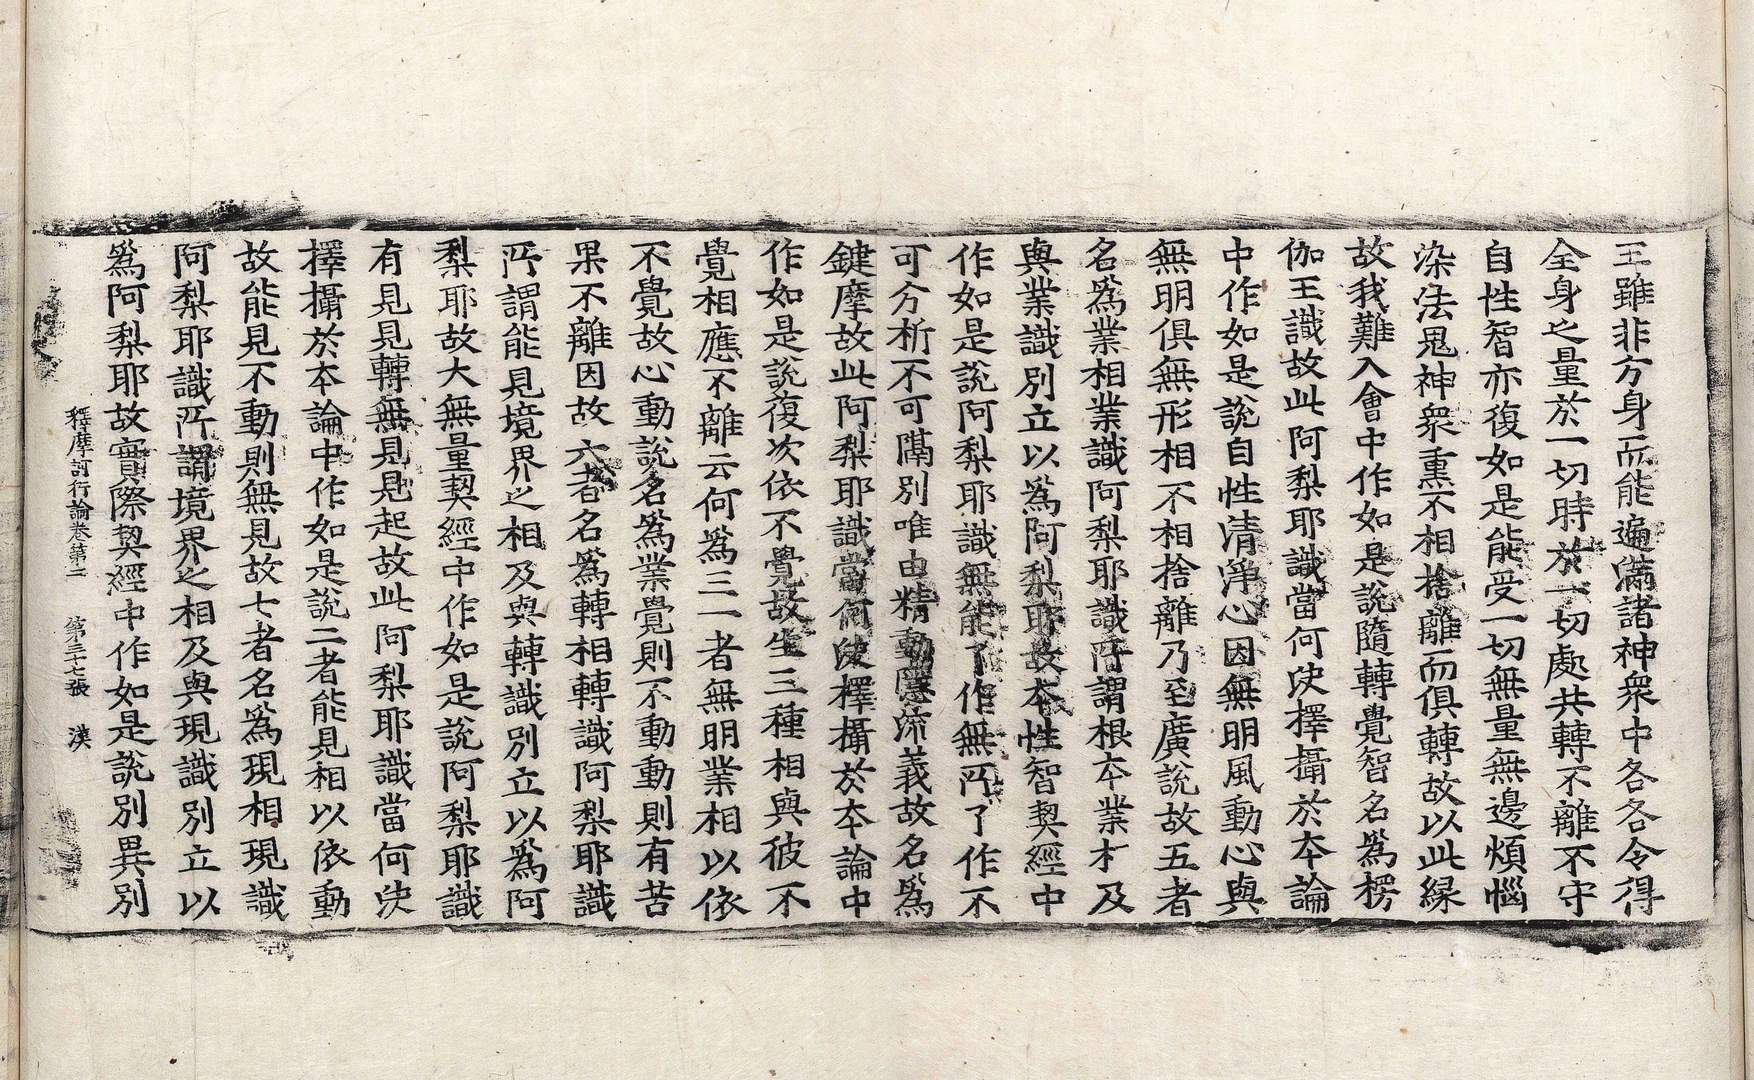 王雖非方身而能遍滿諸神衆中各各令得
全身之量於一切時於一切處共轉不離不守
自性智亦復如是能受一切無量無邊煩惱
染法鬼神衆熏不相捨離而俱轉故以此緣
故我難入會中作如是說隨轉覺智名爲楞
伽王識故此阿梨耶識當何決擇攝於夲論
中作如是說自性清淨心因無明風動心與
無明俱無形相不相捨離乃至廣說故五者
名爲業相業識阿梨耶識所謂根夲業相及
與業識別立以爲阿梨耶故夲性智契經中
作如是說阿梨耶識無能了作無所了作不
可分析不可隔別唯由精動隱流義故名爲
鍵摩故此阿梨耶識當何決擇攝於夲論中
作如是說復次依不覺故生三種相與彼不
覺相應不離云何爲三一者無明業相以依
不覺故心動說名爲業覺則不動動則有苦
果不離因故六者名爲轉相轉識阿梨耶識
所謂能見境界之相及與轉識別立以爲阿
梨耶故大無量契經中作如是說阿梨耶識
有見見轉無見見起故此阿梨耶識當何決
擇攝於夲論中作如是說二者能見相以依動
故能見不動則無見故七者名爲現相現識
阿梨耶識所謂境界之相及與現識別立以
爲阿梨耶故實際契經中作如是說別異別
釋摩訶衍論卷第二 第三十七張 漢